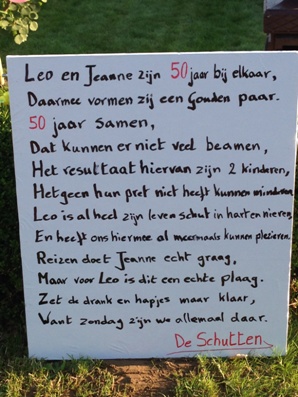 Leo en Jeanne zijn 50 jaar bij elkaar,
Daarmee vormen zij een Gouden paar.
50 jaar samen,
Dat kunnen er niet veel beamen,
Het resultaat hiervan zijn 2 kinderen,
Hetgeen hun pret niet heeft kunnen minderen,
Leo is al heel zijn leven schut in hart en nieren,
En heeft ons hiermee al meermaals kunnen plezieren.
Reizen doet Jeanne echt graag,
Maar voor Leo is dit een echte plaag.
Zet de drank en hapjes maar klaar,
Want zondag zijn we allemaal daar.
De Schutten